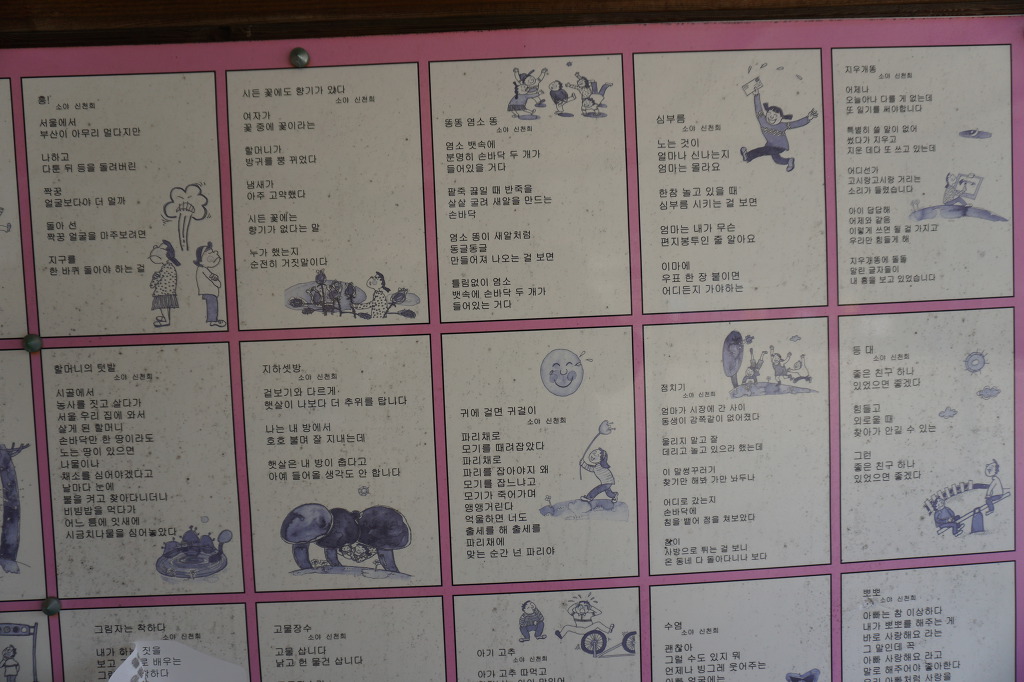 흥!
소야 신천희
서울에서
부산이 아무리 멀다지만
나하고
다툰 뒤 등을 돌려버린
짝꿍
얼굴보다야 더 멀까
돌아 선
짝꿍 얼굴을 마주보려면
지구를
한 바퀴 돌아야 하는 걸
시든 꽃에도 향기가 있다
소야 신천희
여자가
꽃 중에 꽃이라는
할머니가
방귀를 뿡 뀌었다
냄새가
아주 고약했다
시든 꽃에는
향기가 없다는 말
누가 했는지
순전히 거짓말이다
똥똥 염소 똥
소야 신천희
염소 뱃속에
분명히 손바닥 두 개가
들어있을 거다
팥죽 끓일 때 반죽을
살살 굴려 새알을 만드는
손바닥
염소 똥이 새알처럼
동글동글
만들어져 나오는 걸 보면
틀림없이 염소
뱃속에 손바닥 두 개가
들어있는 거다
심부름
소야 신천희
노는 것이
얼마나 신나는지
엄마는 몰라요
한참 놀고 있을 때
심부름 시키는 걸 보면
엄마는 내가 무슨
편지봉투인 줄 알아요
이마에
우표 한 장 붙이면
어디든지 가야하는
지우개똥
소야 신천희
어제나
오늘이나 다를 게 없는데
또 일기를 써야합니다
특별히 쓸 말이 없어
썼다가 지우고
지운 데다 또 쓰고 있는데
어디선가
고시랑고시랑 거리는
소리가 들렸습니다
아이 답답해
어제와 같음
이렇게 쓰면 될 걸 가지고
우리만 힘들게 해
지우개똥에 돌돌
말린 글자들이
내 흉을 보고 있었습니다
할머니의 텃밭
소야 신천희
시골에서
농사를 짓고 살다가
서울 우리 집에 와서
살게 된 할머니
손바닥만 한 땅이라도
노는 땅이 있으면
나물이나
채소를 심어야겠다고
날마다 눈에
불을 켜고 찾아다니더니
비빔밥을 먹다가
어느 틈에 잇새에
시금치나물을 심어놓았다
지하셋방
소야 신천희
겉보기와 다르게
햇살이 나보다 더 추위를 탑니다
나는 내 방에서
호호 불며 잘 지내는데
햇살은 내 방이 춥다고
아예 들어올 생각도 안 합니다
귀에 걸면 귀걸이
소야 신천희
파리채로
모기를 때려잡았다
파리채로
파리를 잡아야지 왜
모기를 잡느냐고
모기가 죽어가며
앵앵거린다
억울하면 너도
출세를 해 출세를
파리채에
맞는 순간 넌 파리야
점치기
소야 신천희
엄마가 시장에 간 사이
동생이 감쪽같이 없어졌다
울리지 말고 잘
데리고 놀고 있으라 했는데
이 말썽꾸러기
찾기만 해봐 가만 놔두나
어디로 갔는지
손바닥에
침을 뱉어 점을 쳐보았다
침이
사방으로 튀는 걸 보니
온 동네 다 돌아다니나 보다
등 대
소야 신천희
좋은 친구 하나
있었으면 좋겠다
힘들고
외로울 때
찾아가 안길 수 있는
그런
좋은 친구 하나
있었으면 좋겠다
그림자는 착하다
소야 신천희
내가 하는 짓을
보고
로 배우는
착하다
고물장수
소야 신천희
고물 삽니다
낡고 헌 물건 삽니다
아기 고추
소야 신천희
아가 고추 따먹고
수염
소야 신천희
괜찮아
그럴 수도 있지 뭐
언제나 빙그레 웃어주는
아빠 얼굴에는
뽀뽀
소야 신천희
아빠는 참 이상하다
내가 뽀뽀를 해주는 게
바로 사랑해요 라는
그 말인데 꼭
아빠 사랑해요 라고
말로 해주어야 좋아한다